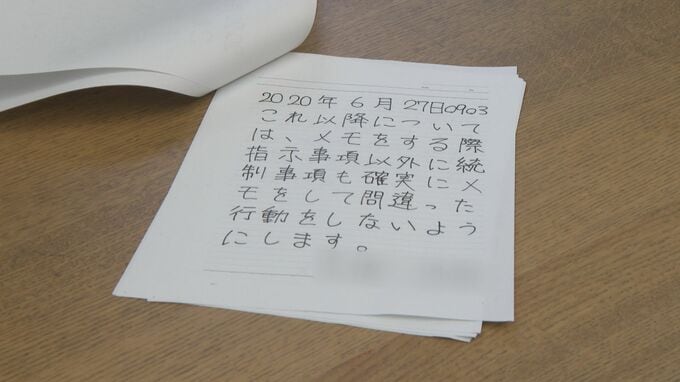 2020年6月27日0903
これ以降について
は、メモをする際
指示事項以外に統
制事項も確実にメ
モをして間違った
行動をしないよう
にします。